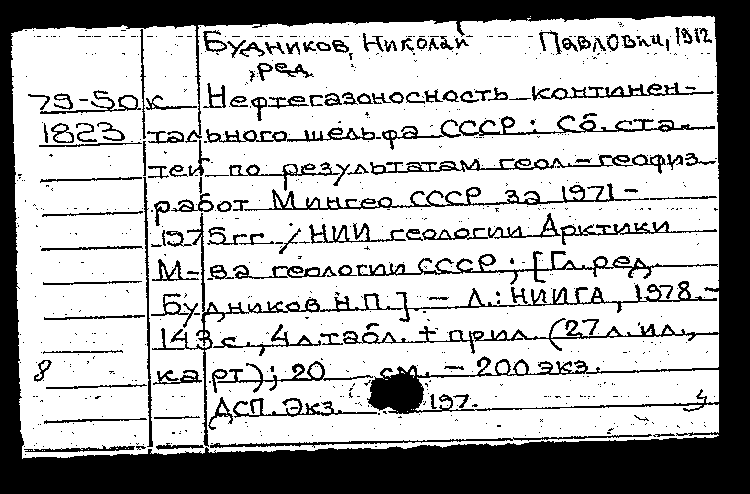 Будников, Николай Павлович, 1912
, ред.
79-50к Нефтегазоносность континен-
1823 тального шельфа СССР: Сб. ста-
тей по результатам геол.-геофиз.
работ Мингео СССР за 1971-
1975гг. / НИИ геологии Арктики
М-ва геологии СССР; [Гл. ред.
Будников Н.П.] - Л.: НИИГА, 1978.-
143 с., 4 л. табл. + прил. (27 л. ил.,
8 карт); 20 см. - 200 экз.
ДСП. Экз. 197.